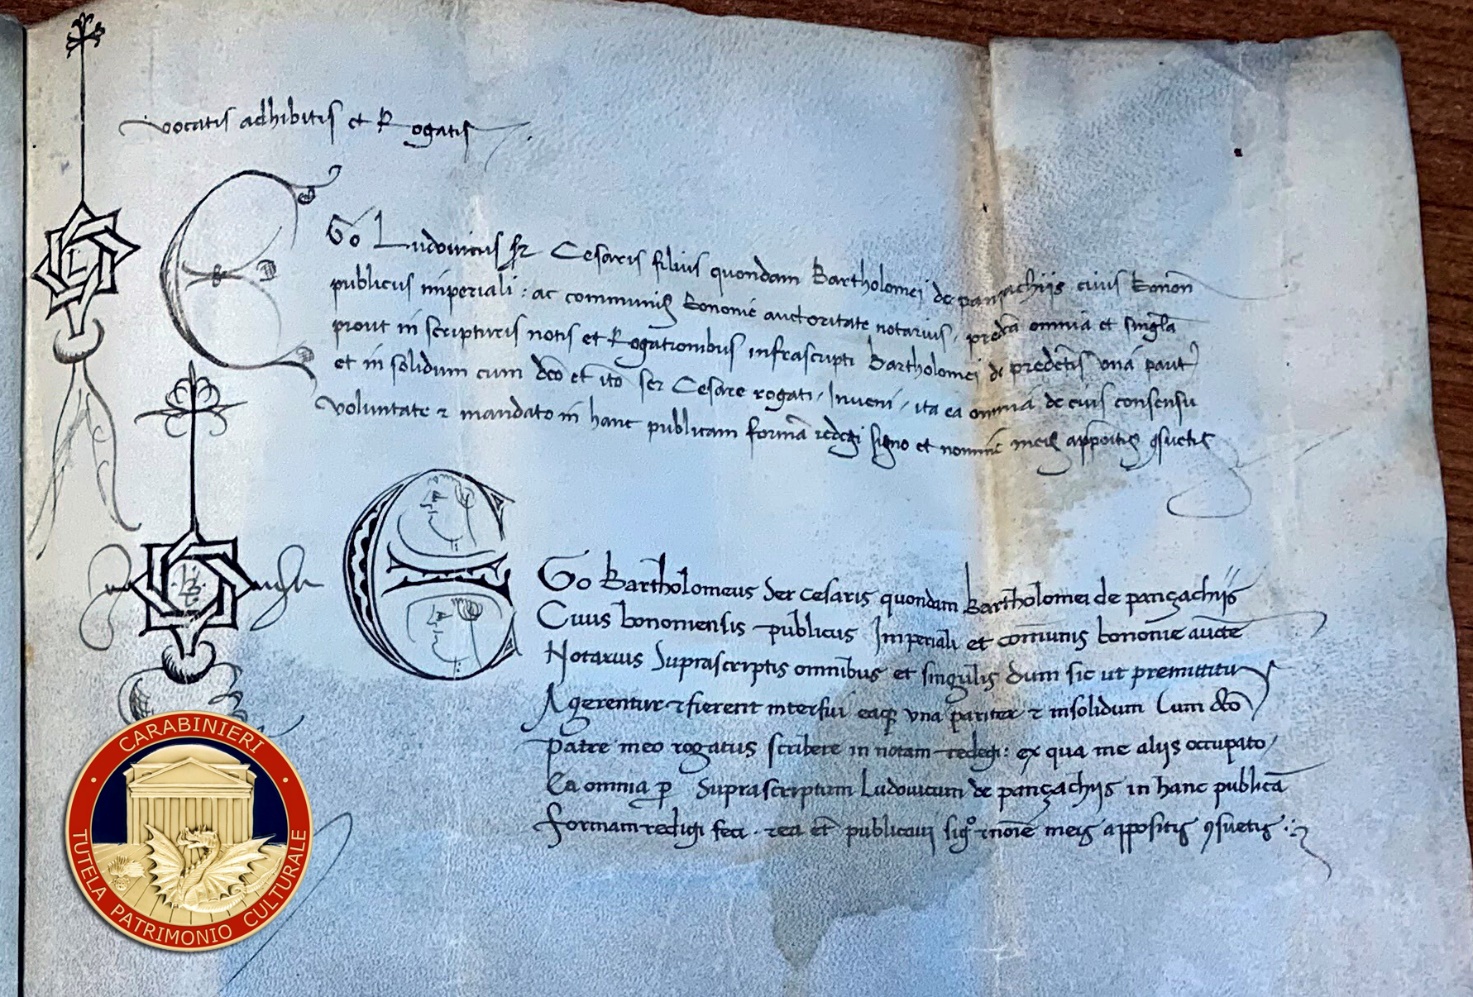 vocatis adhibitis et Rogatis
EGo Ludovicus ser Cesaris filius quondam Bartholomei de panzachijs civis bonon
publicus imperiali: ac communis bononie auctoritate notarius, predca omnia et singla
prout in scripturis notis et Rogationibus infrascripti Bartholomei de predctis una parit
et in solidum cum dco et ito ser Cesare rogati, Inveni, ita ea omnia de eius consensu
voluntate z mandato in hanc publicam forma redegi signo et nomine meis appositis 9suetis
EGo Bartholomeus Ser Cesaris quondam Bartholomei de pançachijs
Civis bononiensis publicus Imperiali et comunis bononie aucte
Notarius Suprascriptis omnibus et singulis dum sic ut premittitur
Agerentur z fierent interfui eaq una pariter z insolidum Cum dco
patre meo rogatus scribere in notam redegi: ex qua me alijs occupato
Ea omnia p Suprascriptum Ludovicum de pançachijs in hanc publica
formam redigi feci. publicavi sig° z noie meis appositis 9suetis
L
CARABINIERI
TUTELA PATRIMONIO CULTURALE